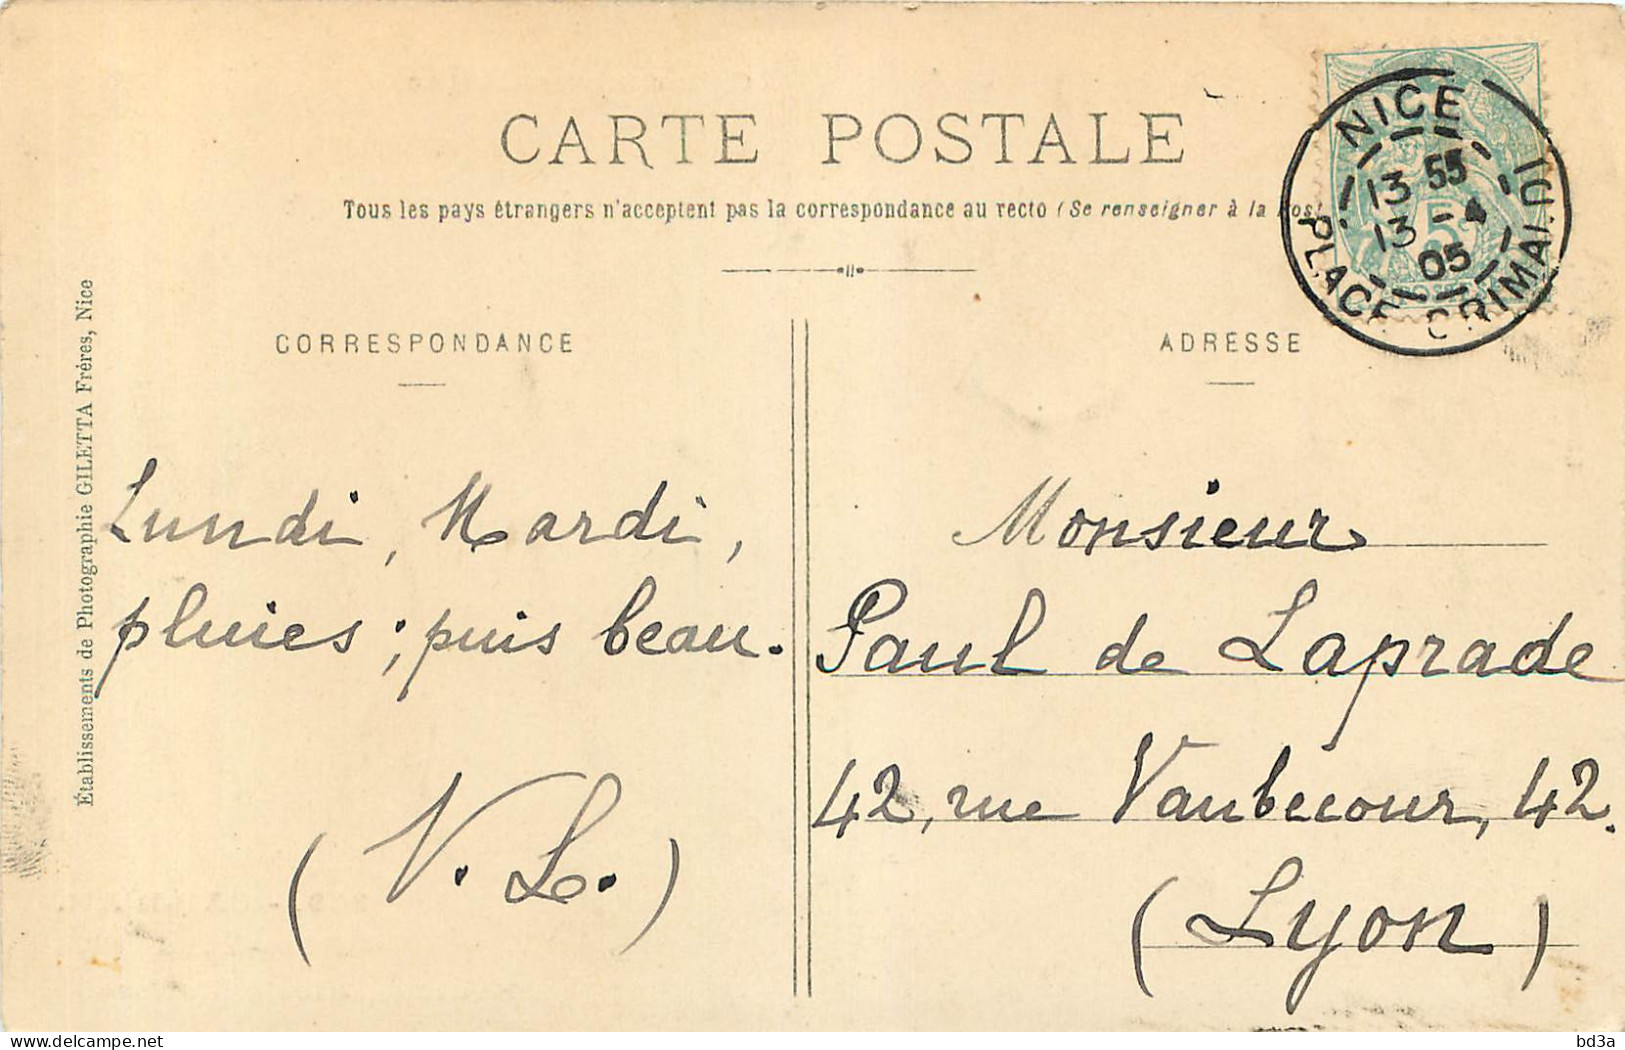 CARTE POSTALE
Tous les pays étrangers n'acceptent pas la correspondance au recto (Se renseigner à la
NICE
13 55
13 - 4
05
PLACE GRIMALDI
5
CORRESPONDANCE
ADRESSE
Établissements de Photographie GILETTA Frères, Nice
Lundi, Mardi,
pluies; puis beau.
(V. L.)
Monsieur
Paul de Laprade
42, rue Vaubecour, 42.
(Lyon)
bd3a